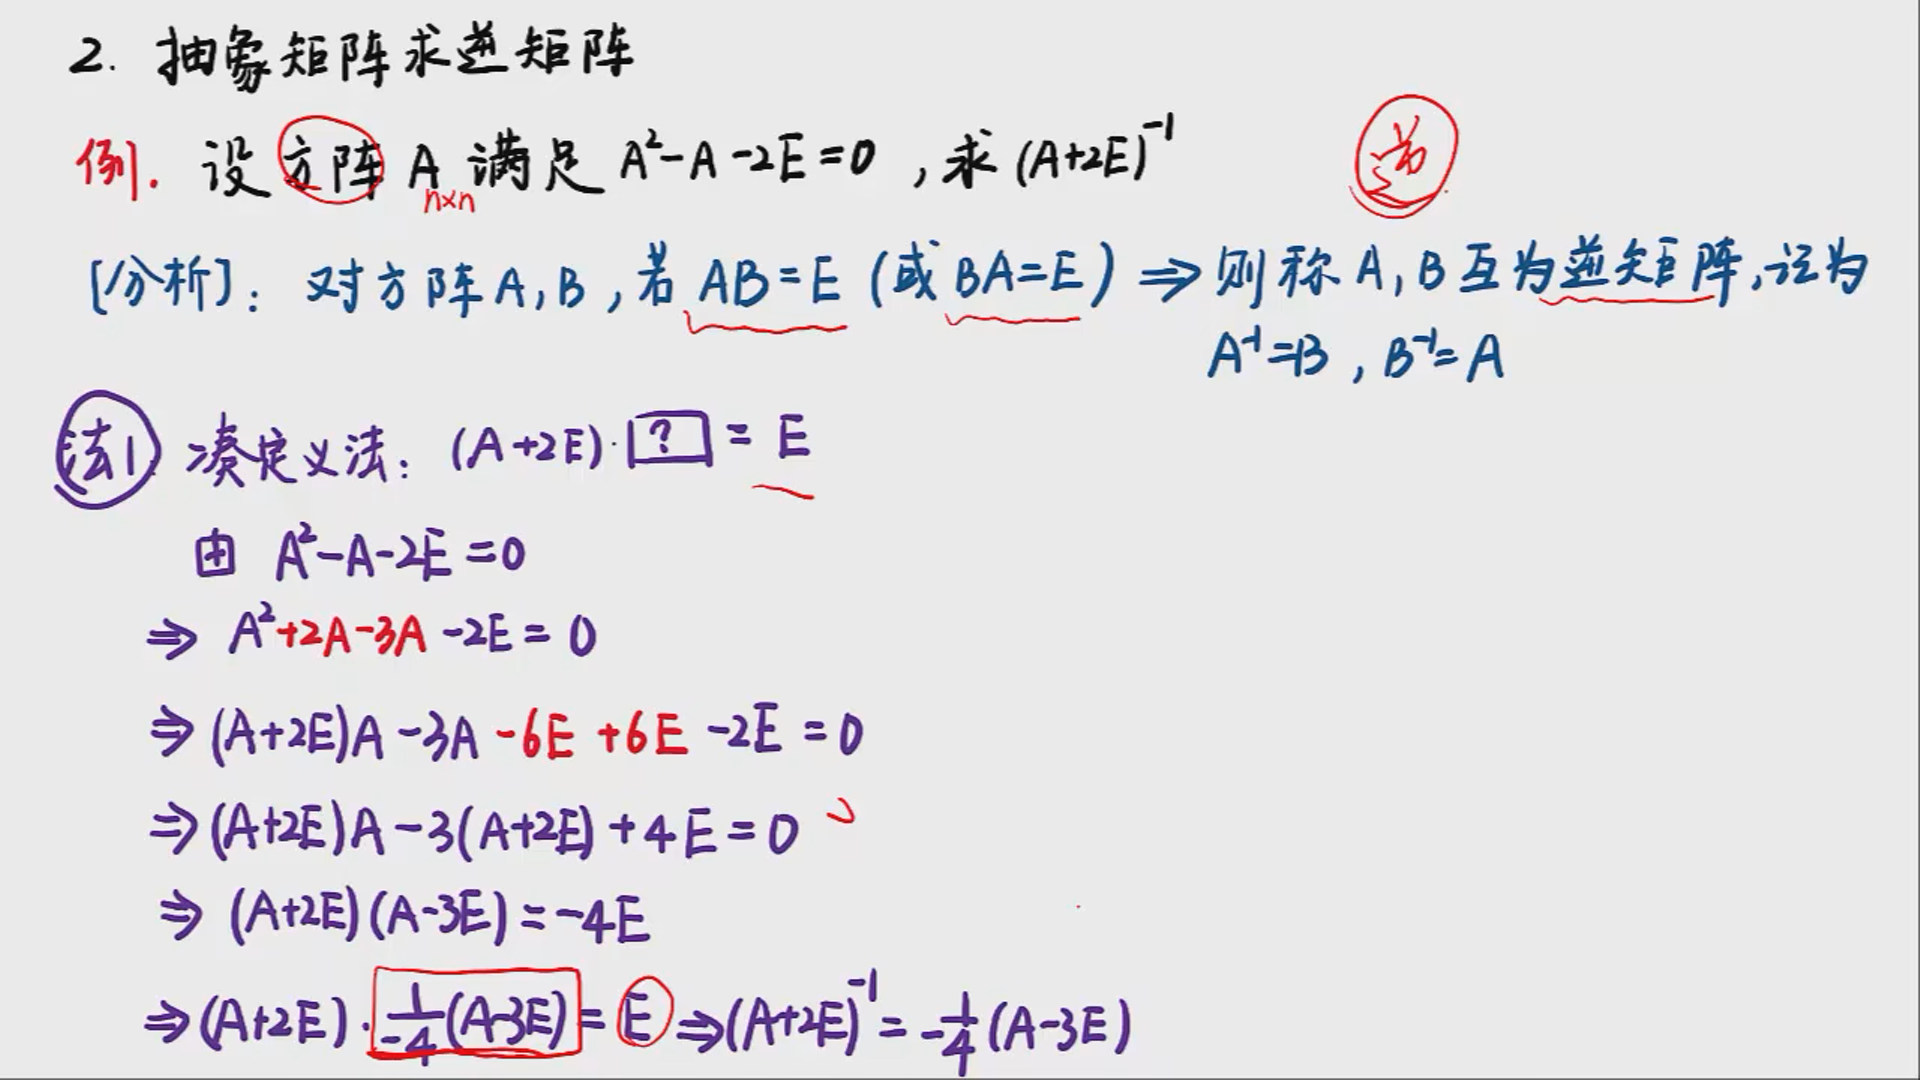 2. 抽象矩阵求逆矩阵
例. 设方阵 A 满足 A²-A-2E=0 , 求 (A+2E)⁻¹
n×n
[分析]: 对方阵 A, B , 若 AB=E (或 BA=E) ⇒ 则称 A, B 互为逆矩阵, 记为
A⁻¹=B , B⁻¹=A
法1 凑定义法: (A+2E)·[?] = E
由 A²-A-2E=0
⇒ A²+2A-3A-2E=0
⇒ (A+2E)A-3A-6E+6E-2E=0
⇒ (A+2E)A-3(A+2E)+4E=0
⇒ (A+2E)(A-3E)=-4E
⇒ (A+2E)·1/-4(A-3E)=E ⇒ (A+2E)⁻¹=-1/4(A-3E)